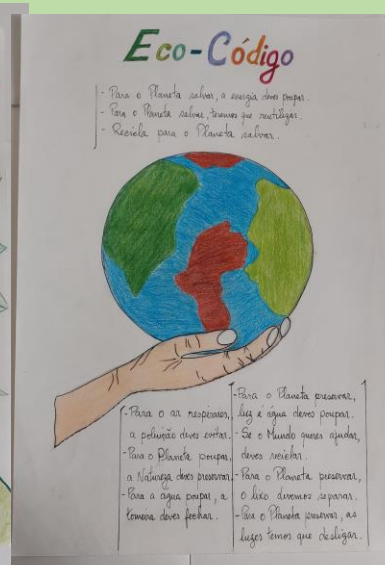 Eco-Código
- Para o Planeta salvar, a energia deves poupar.
- Para o Planeta salvar, teremos que reutilizar.
- Recicla para o Planeta salvar.
- Para o ar respirares,
a poluição deves evitar.
- Para o Planeta poupar,
a Natureza deves preservar.
- Para a água poupar, a
torneira deves fechar.
- Para o Planeta preservar,
luz e água deves poupar.
- Se o Mundo queres ajudar,
deves reciclar.
- Para o Planeta preservar,
o lixo devemos separar.
- Para o Planeta preservar, as
luzes temos que desligar.